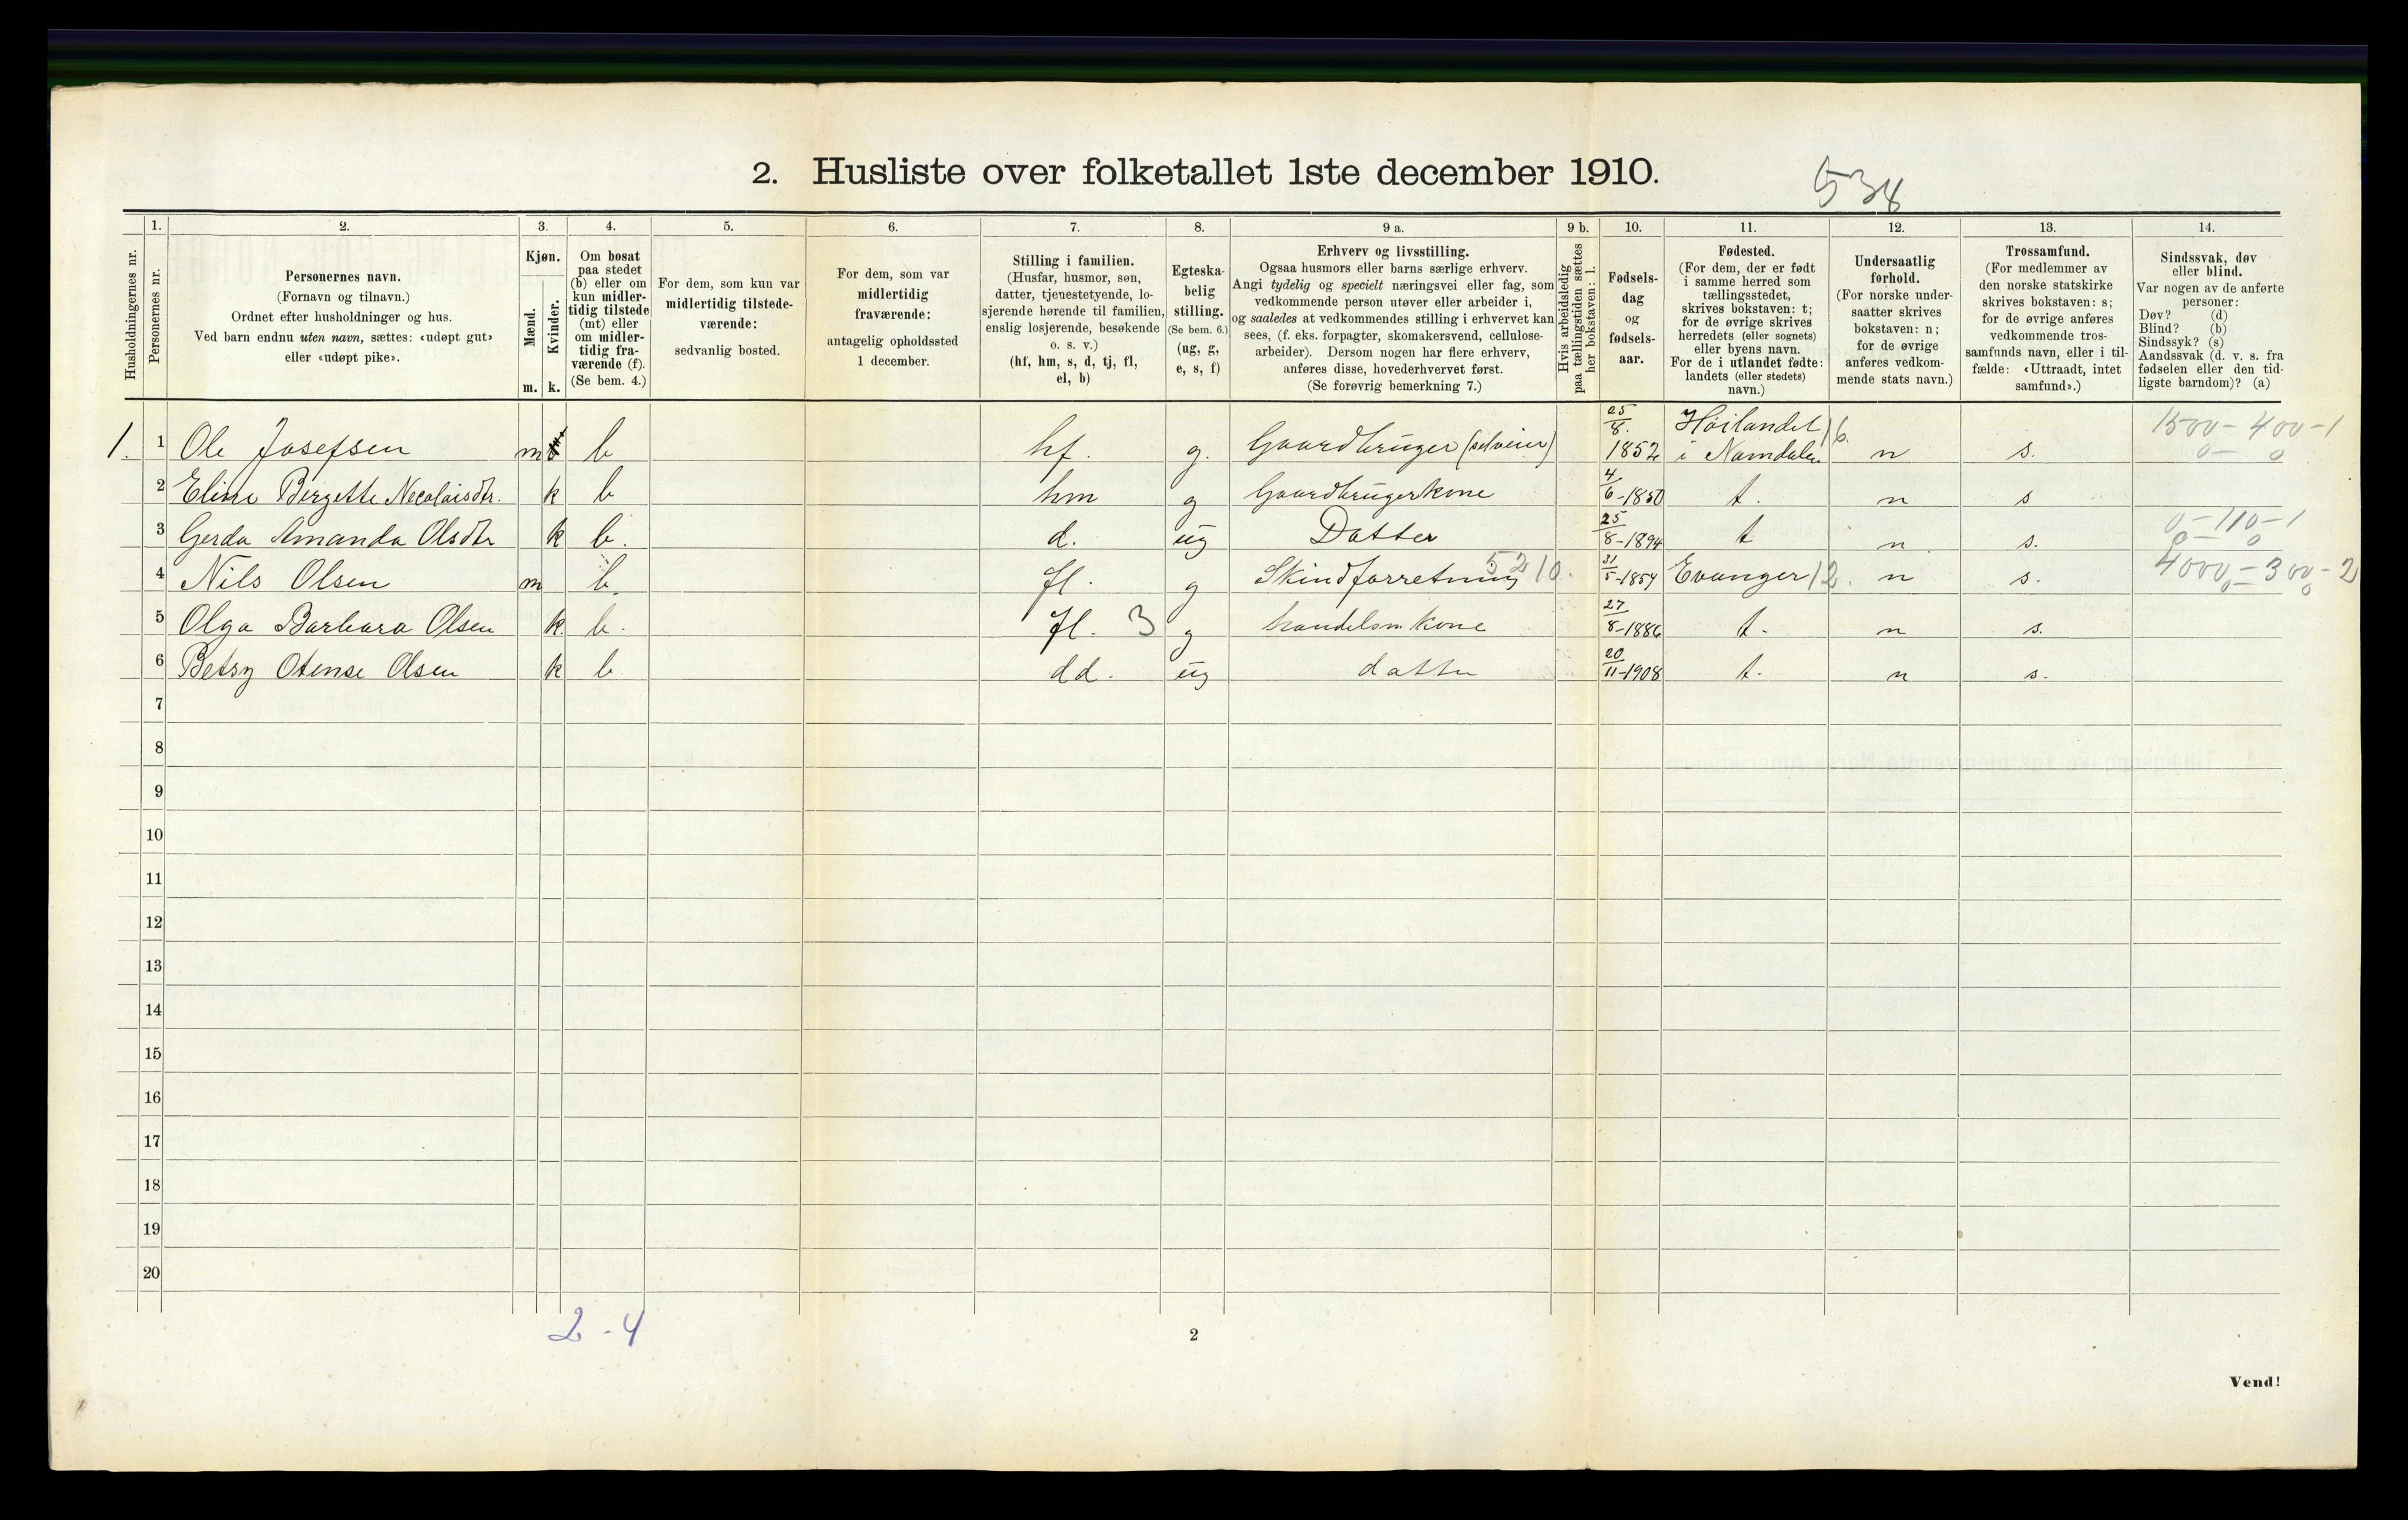 2. Husliste over folketallet 1ste december 1910.
538
Husholdningernes nr.
1.
Personernes nr.
2.
Personernes navn.
(Fornavn og tilnavn.)
Ordnet efter husholdninger og hus.
Ved barn endnu uten navn, sættes: «udøpt gut»
eller «udøpt pike».
3.
Kjøn.
Mænd.
Kvinder.
m. k.
4.
Om bosat
paa stedet
(b) eller om
kun midler-
tidig tilstede
(mt) eller
om midler-
tidig fra-
værende (f).
(Se bem. 4.)
5.
For dem, som kun var
midlertidig tilstede-
værende:
sedvanlig bosted.
6.
For dem, som var
midlertidig
fraværende:
antagelig opholdssted
1 december.
7.
Stilling i familien.
(Husfar, husmor, søn,
datter, tjenestetyende, lo-
sjerende hørende til familien,
enslig losjerende, besøkende
o. s. v.)
(hf, hm, s, d, tj, fl,
el, b)
8.
Egteska-
belig
stilling.
(Se bem. 6.)
(ug, g,
e, s, f)
9 a.
Erhverv og livsstilling.
Ogsaa husmors eller barns særlige erhverv.
Angi tydelig og specielt næringsvei eller fag, som
vedkommende person utøver eller arbeider i,
og saaledes at vedkommendes stilling i erhvervet kan
sees, (f. eks. forpagter, skomakersvend, cellulose-
arbeider). Dersom nogen har flere erhverv,
anføres disse, hovederhvervet først.
(Se forøvrig bemerkning 7.)
9 b.
Hvis arbeidsledig
paa tællingstiden sættes
her bokstaven: l.
10.
Fødsels-
dag
og
fødsels-
aar.
11.
Fødested.
(For dem, der er født
i samme herred som
tællingsstedet,
skrives bokstaven: t;
for de øvrige skrives
herredets (eller sognets)
eller byens navn.
For de i utlandet fødte:
landets (eller stedets)
navn.)
12.
Undersaatlig
forhold.
(For norske under-
saatter skrives
bokstaven: n;
for de øvrige
anføres vedkom-
mende stats navn.)
13.
Trossamfund.
(For medlemmer av
den norske statskirke
skrives bokstaven: s;
for de øvrige anføres
vedkommende tros-
samfunds navn, eller i til-
fælde: «Uttraadt, intet
samfund».)
14.
Sindssvak, døv
eller blind.
Var nogen av de anførte
personer:
Døv? (d)
Blind? (b)
Sindssyk? (s)
Aandssvak (d. v. s. fra
fødselen eller den tid-
ligste barndom)? (a)
1. 1 Ole Josefsen m b hf. g. Gaardbruger (selveier) 25/8. 1852 Høilandet i Namdalen 16. n s. 1500-400-1 0- 0
2 Eline Bergette Necolaisdtr. k b hm g Gaardbrugerkone 4/6-1850 t. n s
3 Gerda Amanda Olsdtr k b. d. ug Datter 25/8-1894 t n. s. 0-110-1 0- 0
4 Nils Olsen m b. fl. g Skindforretning 5210. 31/5-1854 Evanger 12. n s. 4000-300-2 0- 0
5 Olga Barbara Olsen k. b. fl. 3 g handelsm. kone 27/8-1886 t. n s.
6 Betsy Otense Olsen k b dd. ug datter 20/11-1908 t. n s.
7
8
9
10
11
12
13
14
15
16
17
18
19
20
2-4
2
Vend!